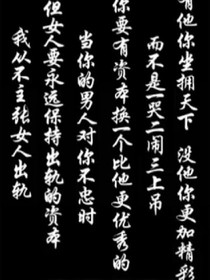 我从不主张女人出轨
但女人要永远保持出轨的资本
当你的男人对你不忠时
你要有资本换一个比他更优秀的
而不是一哭二闹三上吊
有他你坐拥天下 没他你更加精彩